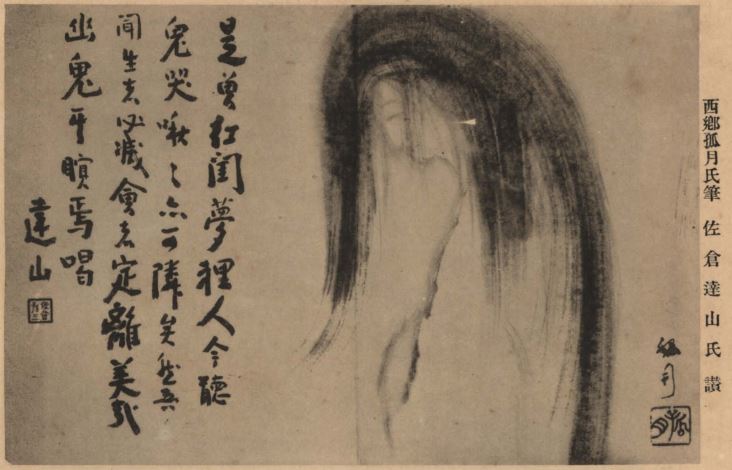 西鄉孤月氏筆 佐倉達山氏讃
孤月
孤月
是曾紅閨夢裡人今聽
鬼哭啾々亦可隣矣然吾
聞生者必滅會者定離美哉
幽鬼乎瞑焉喝
達山